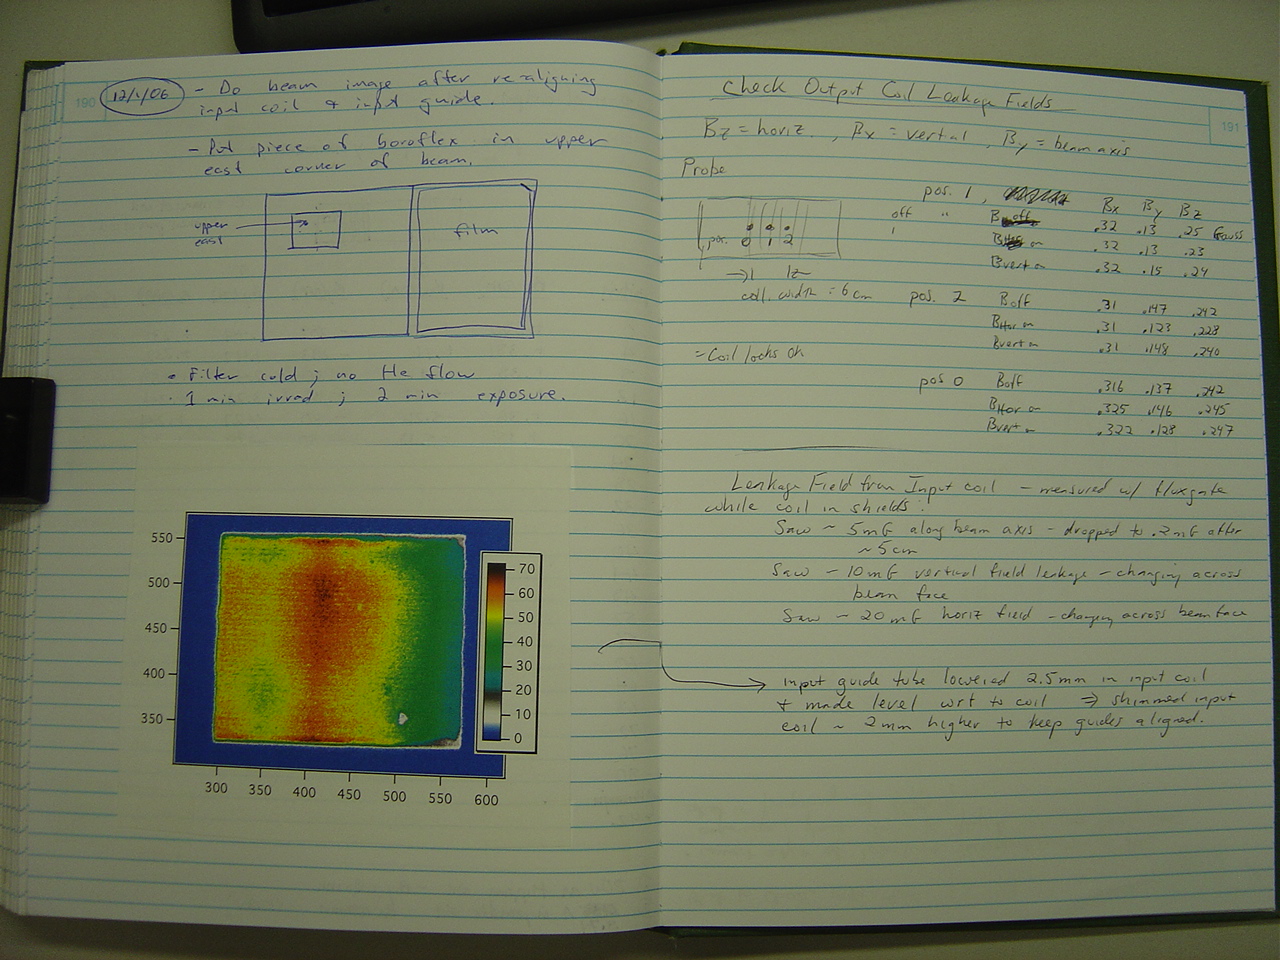 190
12/1/06 - Do beam image after re-aligning
input coil & input guide.
- Put piece of boroflex in upper
east corner of beam.
upper
east
film
• Filter cold ; no He flow
• 1 min irrad ; 2 min exposure.
550
500
450
400
350
300 350 400 450 500 550 600
70
60
50
40
30
20
10
0
191
Check Output Coil Leakage Fields
Bz = horiz. , Bx = vertal , By = beam axis
Probe
pos. 0 1 2
coil. width = 6 cm
= Coil looks OK
pos. 1 , Bx By Bz
off " B off .32 .13 .25 Gauss
B on .32 .13 .23
Bvert on .32 .15 .24
pos. 2 Boff .31 .147 .242
BHor on .31 .123 .228
Bvert on .31 .148 .240
pos 0 Boff .316 .137 .242
BHor on .325 .146 .245
Bvert on .322 .128 .247
Leakage Field from Input coil - measured w/ fluxgate
while coil in shields.
Saw ~ 5mG along beam axis - dropped to .2mG after
~5cm
Saw ~ 10mG vertical field leakage - changing across
beam face
Saw ~ 20 mG horiz field - changing across beam face
input guide tube lowered 2.5mm in input coil
& made level wrt to coil ⇒ shimmed input
coil ~ 2mm higher to keep guides aligned.